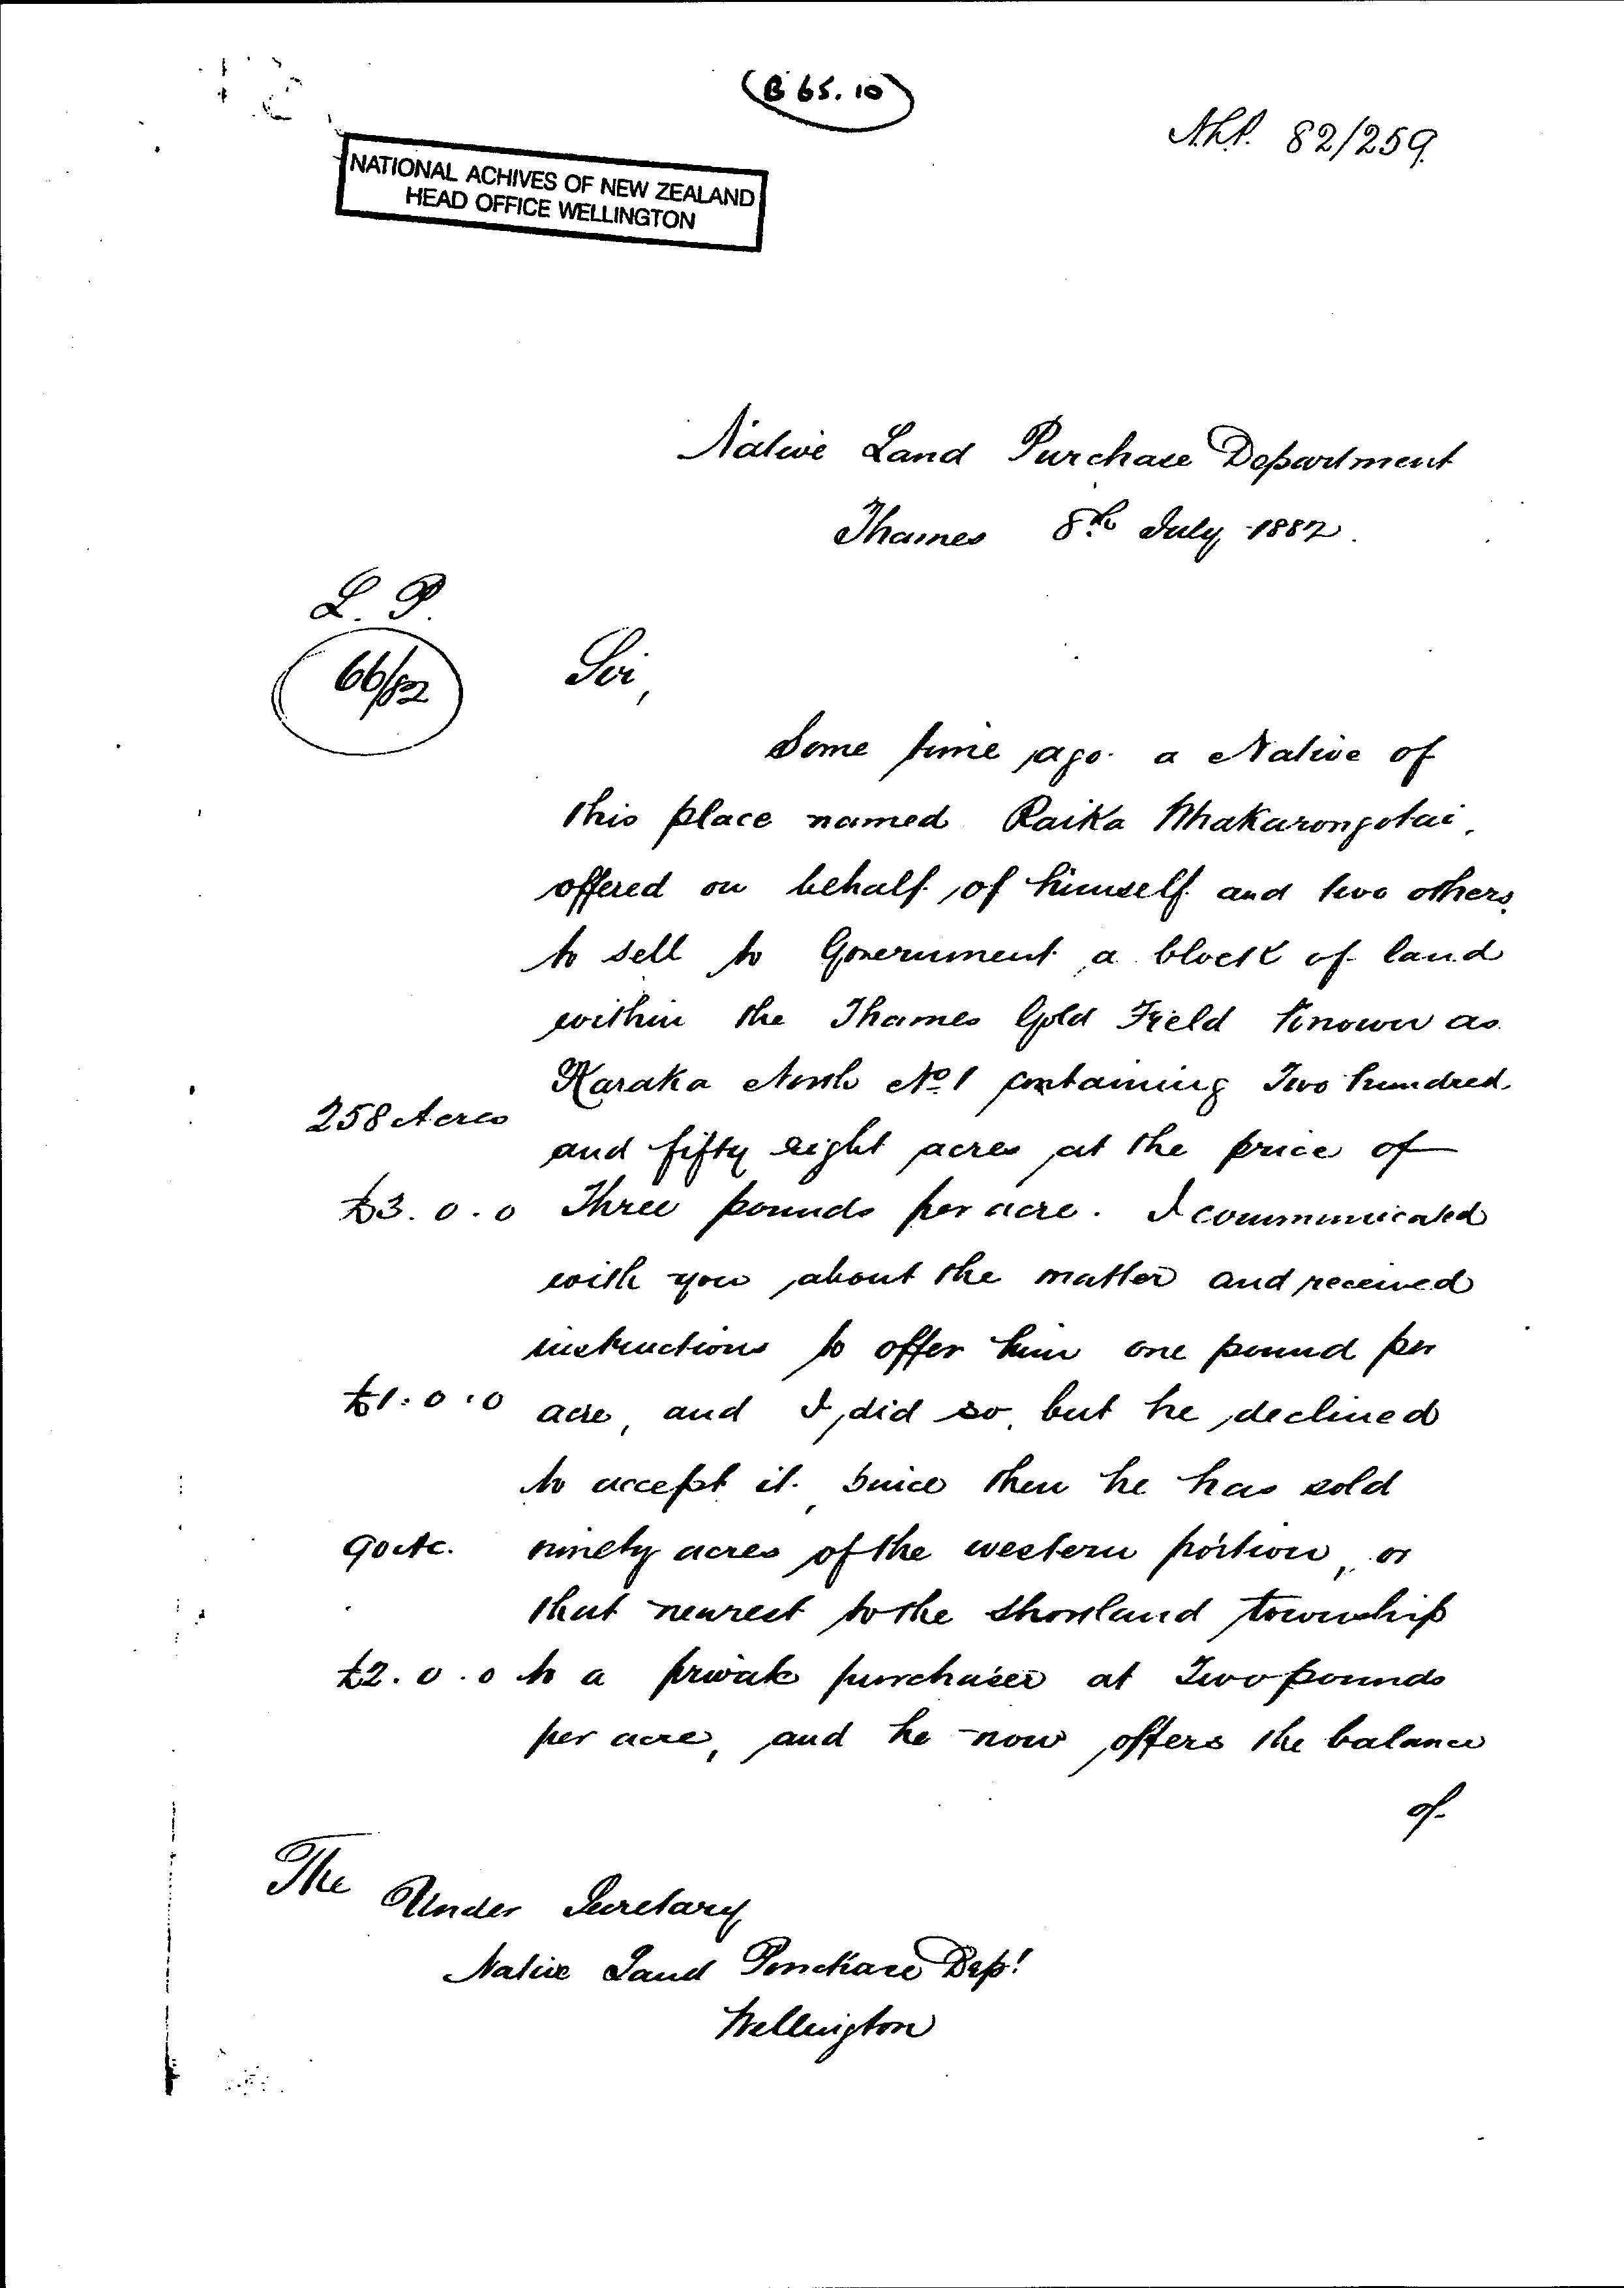 (B 65.10)
N.L.P. 82/259
NATIONAL ACHIVES OF NEW ZEALAND
HEAD OFFICE WELLINGTON
Native Land Purchase Department
Thames 8th July 1882.
L. P.
66/82
Sir,
Some time ago a Native of
this place named Raika Whakarongotai,
offered on behalf of himself and two others,
to sell to Government a block of land
within the Thames Gold Field known as
Karaka North No. 1 containing Two hundred
258 Acres
and fifty eight acres at the price of
£3.0.0 Three pounds per acre. I communicated
with you about the matter and received
instructions to offer him one pound per
£1.0.0 acre, and I did so, but he declined
to accept it. Since then he has sold
90 Ac. ninety acres of the western portion, or
that nearest to the Shortland township
£2.0.0 to a private purchaser at Two pounds
per acre, and he now offers the balance
of
The
Under Secretary
Native Land Purchase Dept
Wellington